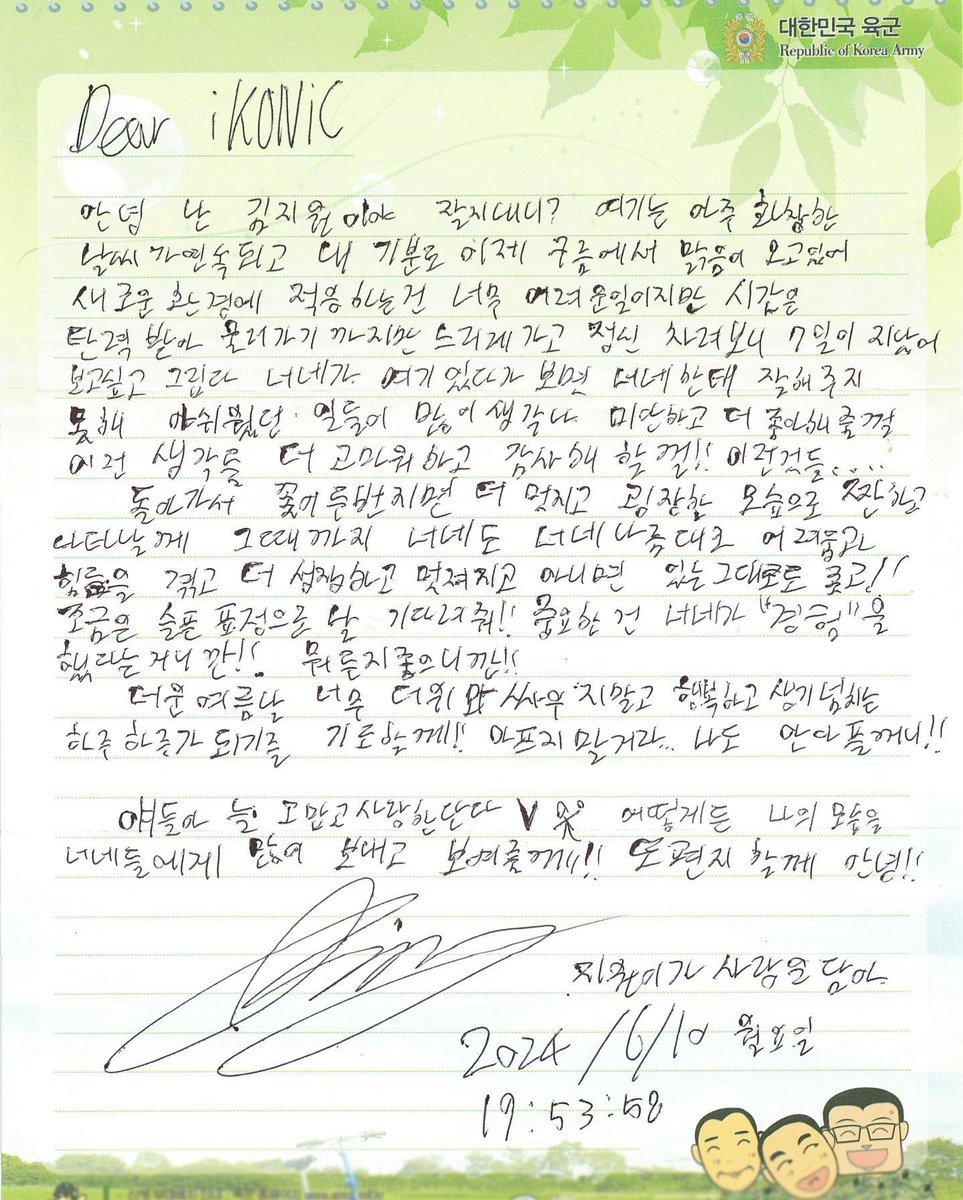 대한민국 육군
Republic of Korea Army
Dear iKONIC
안녕 난 김지원이야 잘지내니? 여기는 아주 화창한
날씨가 연속되고 내 기분도 이제 구름에서 맑음이 오고있어
새로운 환경에 적응하는건 너무 어려운일이지만 시간은
탄력 받아 굴러가기 까지만 느리게가고 정신 차려보니 7일이 지났어
보고싶고 그립다 너네가 여기 있다가 보면 너네한태 잘해주지
못해 아쉬웠던 일들이 많이 생각나 미안하고 더 좋아해줄껄
이런 생각들 더 고마워하고 감사해 할껄!! 이런것들.....
돌아가서 꽃이 두번지면 더 멋지고 굉장한 모습으로 짠하고
나타날께 그때까지 너네도 너네나름대로 어려움과
힘듦을 겪고 더 성장하고 멋져지고 아니면 있는그대로도 좋고!!
조금은 슬픈 표정으로 날 기다려줘!! 중요한 건 너네가 "경험"을
했다는 거니깐!! 뭐든지좋으니깐!!
더운여름날 너무 더위와 싸우지말고 행복하고 생기넘치는
하루하루가 되기를 기도할게!! 아프지말거라... 나도 안아플꺼니!!
얘들아 늘 고맙고 사랑한단다 V 어떻게든 나의 모습을
너네들에게 많이 보내고 보여줄께!!! 또 편지 할께 안녕!!
지원이가 사랑을 담아
2024/6/10 월요일
19:53:58